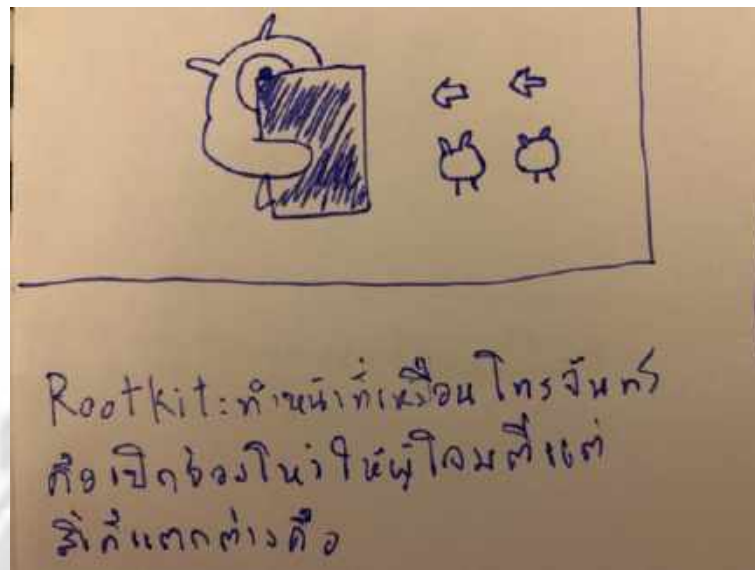 Rootkit: ทำหน้าที่เหมือนโทรจันทร์
คือเปิดช่องโหว่ให้ผู้โจมตีแต่
สิ่งที่แตกต่างคือ